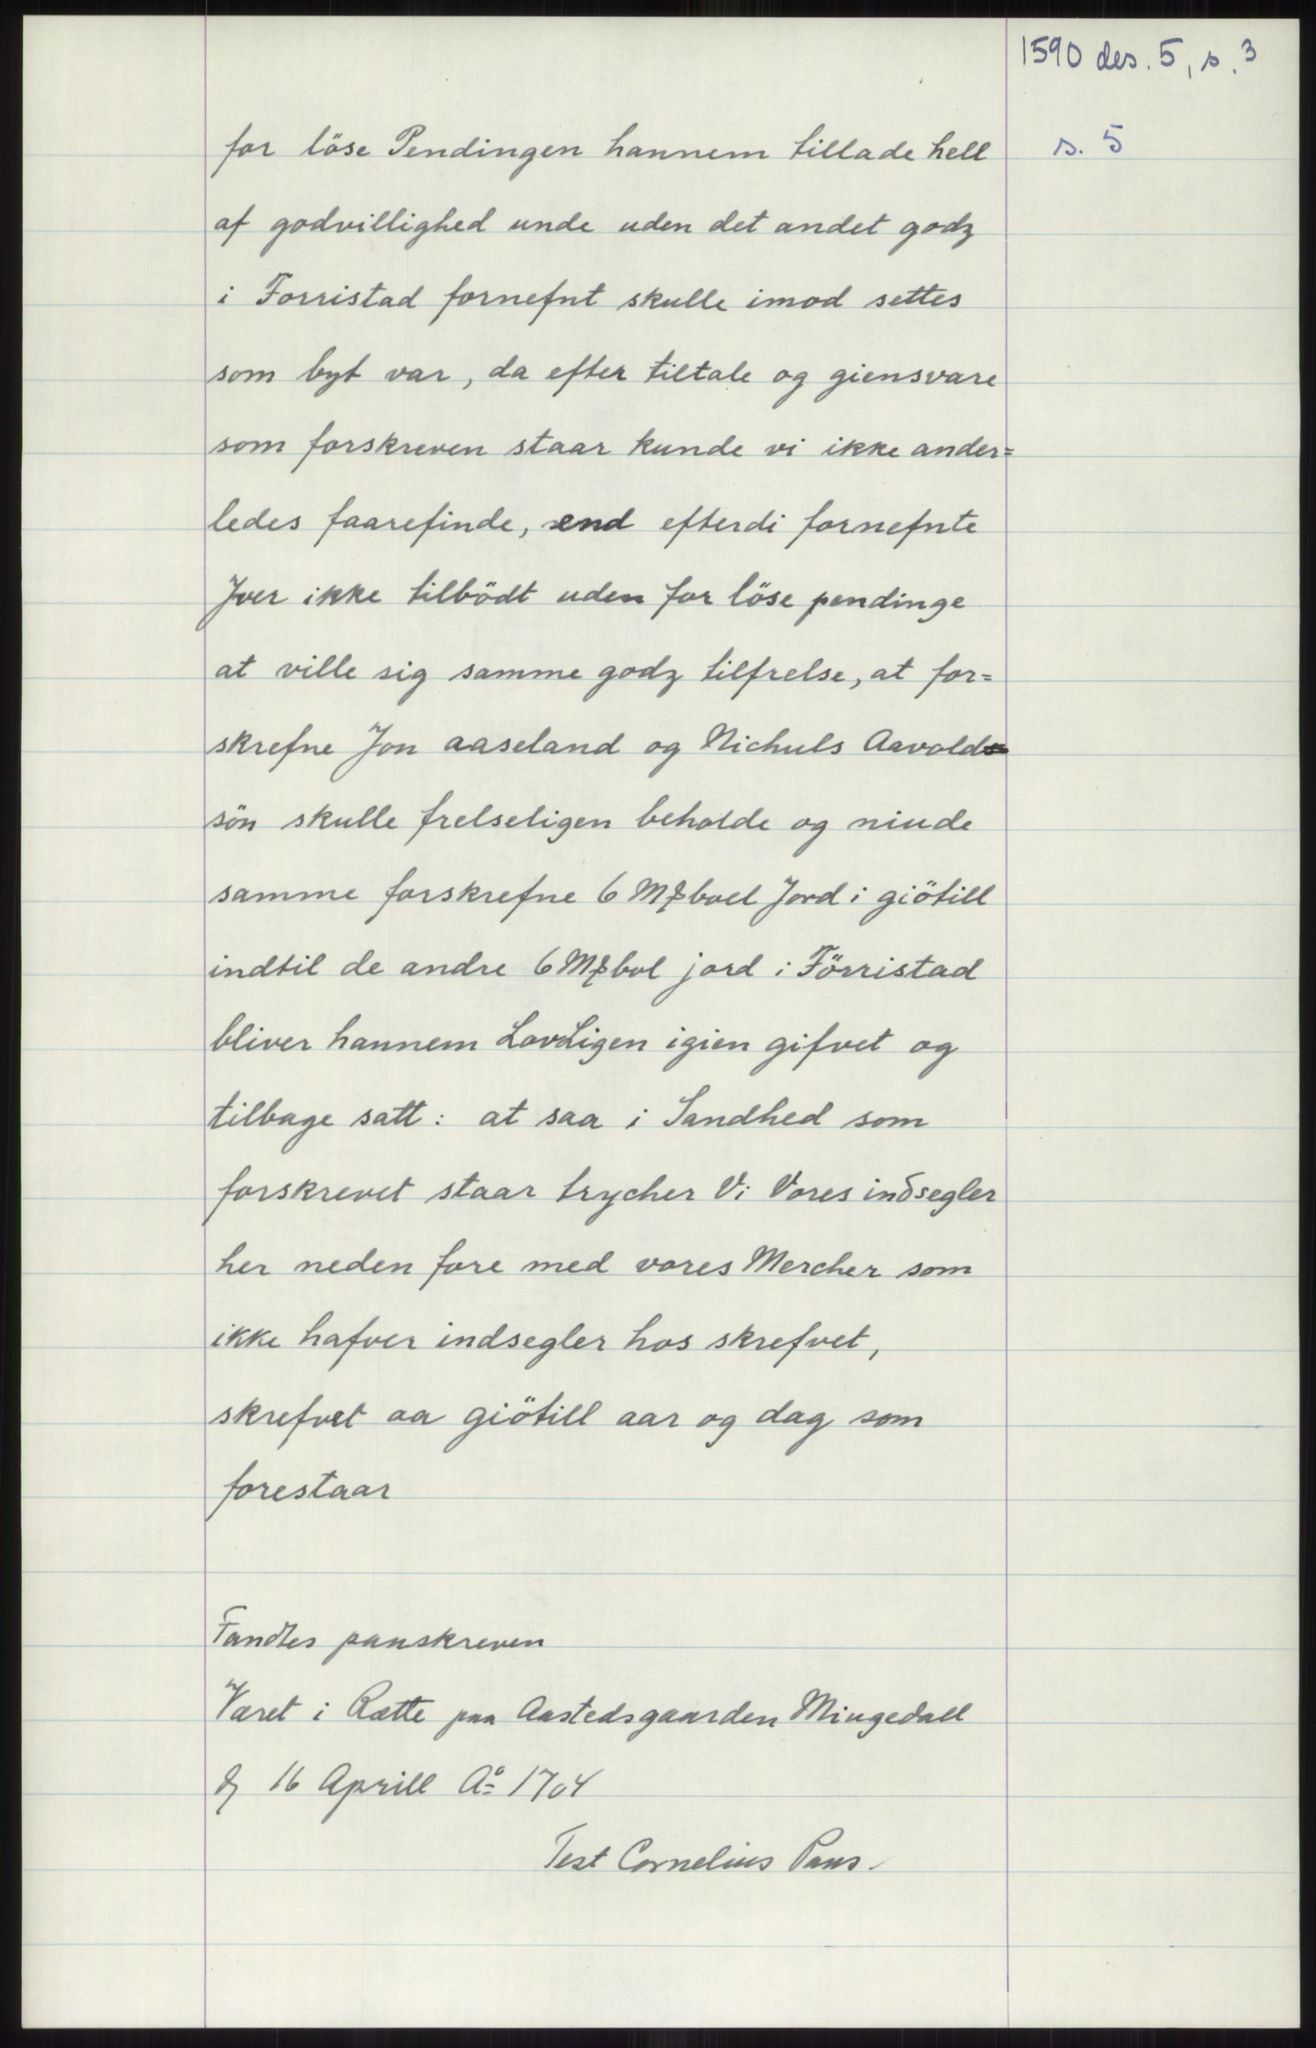 1590 des. 5, s. 3
s. 5
for löse Pendingen hannem tillade hell
af godvillighed unde uden det andet godz
i Forristad fornefnt skulle imod settes
som byt var, da efter tiltale og giensvare
som forskreven staar kunde vi ikke ander=
ledes faarefinde, end efterdi fornefnte
Jver ikke tilbödt uden for löse pendinge
at ville sig samme godz tilfrelse, at for=
skrefne Jon aaseland og Nichuls Aavold
sön skulle frelseligen beholde og niude
samme forskrefne 6 M boel Jord i giötill
indtil de andre 6 M bol jord i Förristad
bliver hannem LovLigen igien gifvet og
tilbage satt: at saa i Sandhed som
forskrevet staar trycher Vi Vores indsegler
her neden fore med vores Mercher som
ikke hafver indsegler hos skrefvet,
skrefvet aa giötill aar og dag som
forestaar
Fandtes paaskreven
Været i Rætte paa Aastedsgaarden Miugedall
d 16 Aprill Aº 1704
Test Cornelius Paus.